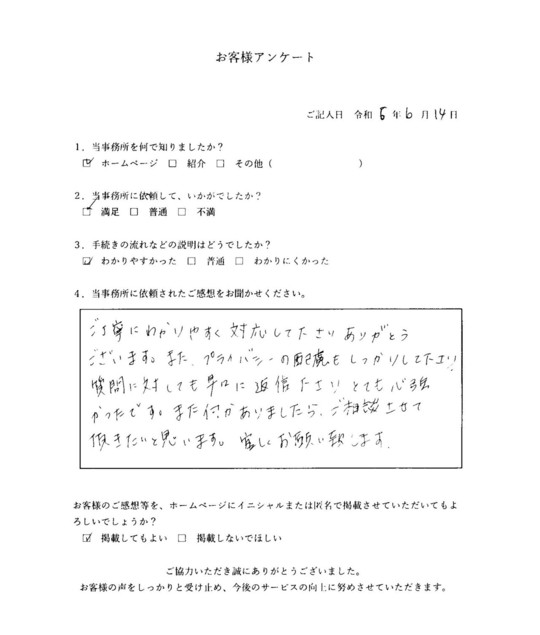 お客様アンケート
ご記入日 令和5年6月14日
1．当事務所を何で知りましたか？
☑ ホームページ □ 紹介 □ その他（ ）
2．当事務所に依頼して、いかがでしたか？
☑ 満足 □ 普通 □ 不満
3．手続きの流れなどの説明はどうでしたか？
☑ わかりやすかった □ 普通 □ わかりにくかった
4．当事務所に依頼されたご感想をお聞かせください。
ご丁寧にわかりやすく対応して下さいありがとう
ございます。また、プライバシーの配慮もしっかりして下さり
質問に対しても早口に返信下さりとても心強
かったです。また何かありましたら、ご相談させて
頂きたいと思います。宜しくお願い致します。
お客様のご感想等を、ホームページにイニシャルまたは匿名で掲載させていただいてもよ
ろしいでしょうか？
☑ 掲載してもよい □ 掲載しないでほしい
ご協力いただき誠にありがとうございました。
お客様の声をしっかりと受け止め、今後のサービスの向上に努めさせていただきます。